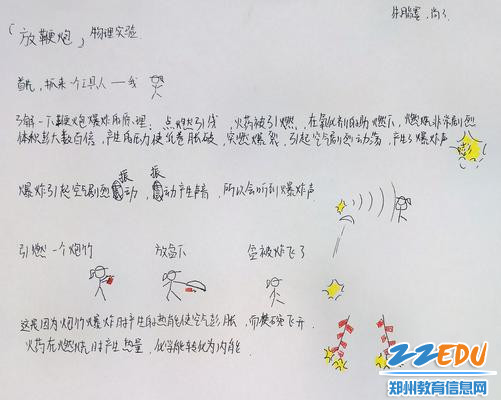 「放鞭炮」物理实验
首先，抓来一个工具人——我
了解一下鞭炮爆炸的原理：点燃引线，火药被引燃，在氧化剂的助燃下，燃烧非常剧烈
体积膨大数百倍，产生的压力使纸卷胀破，突燃爆裂，引起空气剧烈动荡，产生了爆炸声
振 振
爆炸引起空气剧烈动，动产生声音，所以会听到爆炸声
引燃一个炮竹 放盆下 盆被炸飞了
这是因为炮竹爆炸时产生的热能使空气膨胀，而使碗飞开
火药在燃烧时产生热量，化学能转化为内能
22EDU
郑州教育信息网